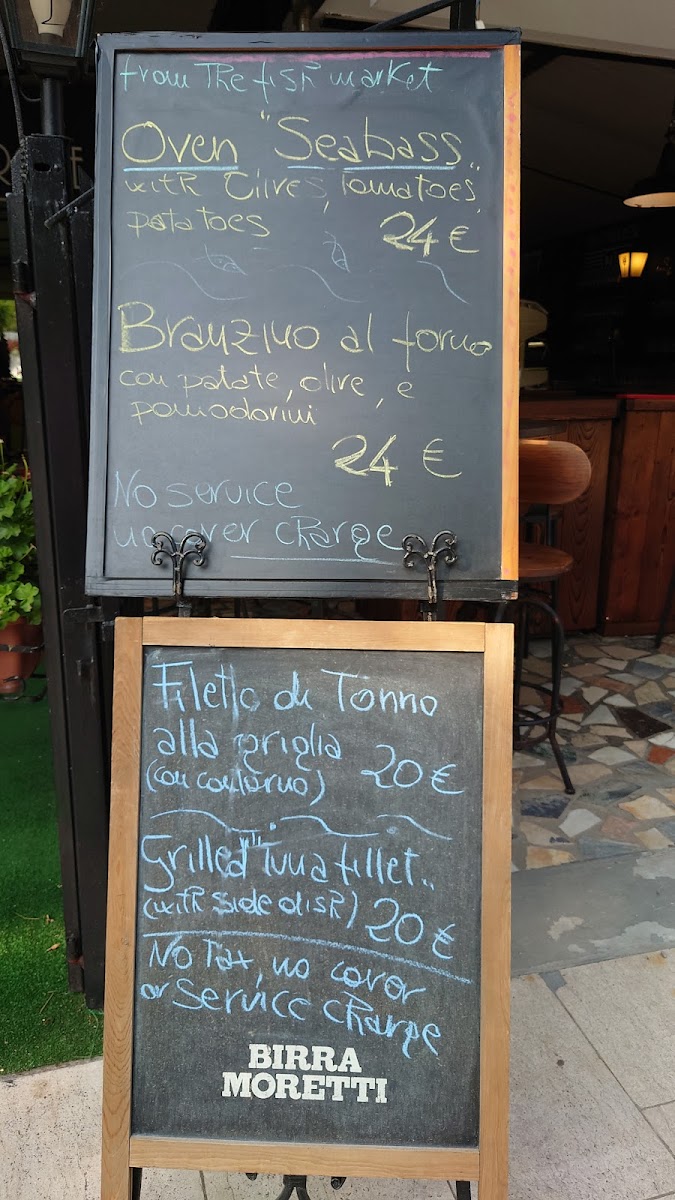 from The fish market
Oven "Seabass"
with Olives, Tomatoes,
patatoes 24 €
Branzino al forno
con patate, olive, e
pomodorini
24 €
No service
no cover charge
Filetto di Tonno
alla griglia 20 €
(con contorno)
Grilled Tuna fillet
(with side dish) 20 €
No Tax, no cover
or Service charge
BIRRA
MORETTI